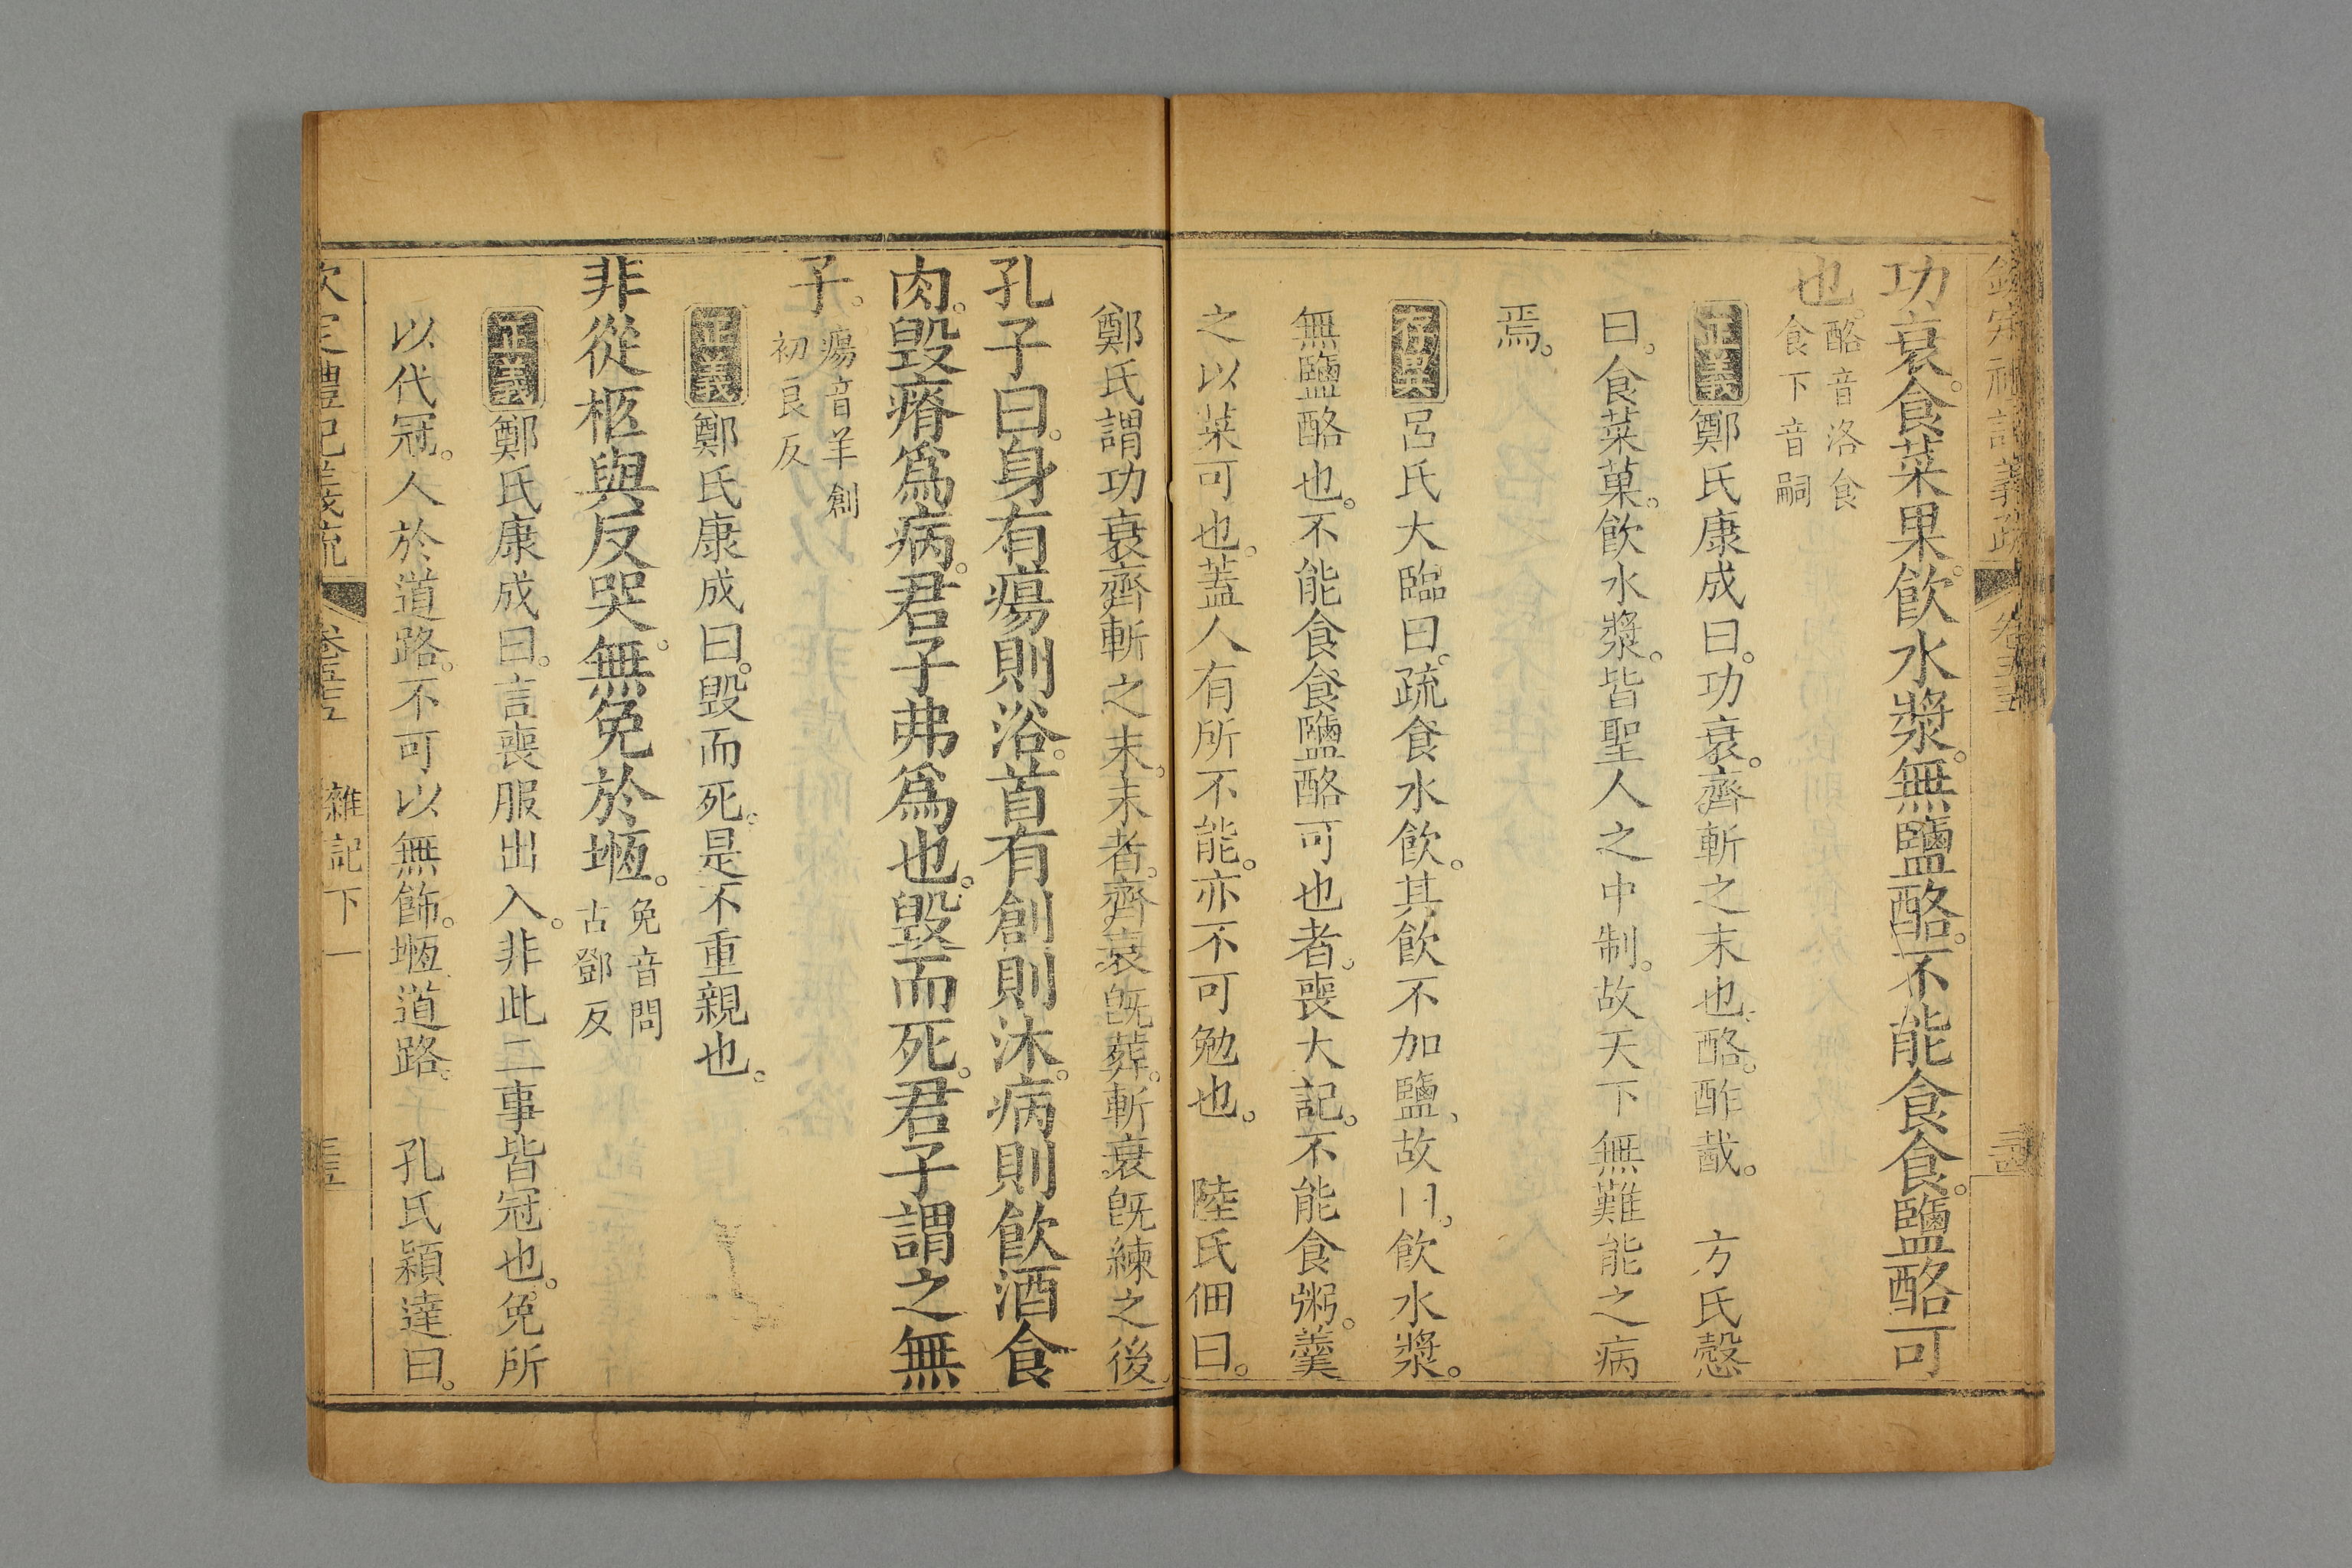 功衰。食菜果。飲水漿。無鹽酪。不能食食。鹽酪可
也。酪音洛食
食下音嗣
正義鄭氏康成曰。功衰。齊斬之末也。酪。酢酨。 方氏慤
曰。食菜菓。飲水漿。皆聖人之中制。故天下無難能之病
焉。
存異呂氏大臨曰。疏食水飲。其飲不加鹽、故曰。飲水漿。
無鹽酪也。不能食食鹽酪可也者。喪大記。不能食粥。羹
之以菜可也。蓋人有所不能。亦不可勉也。 陸氏佃曰。
鄭氏謂功衰齊斬之末。末者。齊衰旣葬。斬衰旣練之後
孔子曰。身有瘍則浴。首有創則沐。病則飲酒食
肉。毀瘠爲病。君子弗爲也。毀而死。君子謂之無
子。瘍音羊創
初良反
正義鄭氏康成曰。毀而死。是不重親也。
非從柩與反哭。無免於堩。免音問
古鄧反
正義鄭氏康成曰。言喪服出入。非此二事皆冠也。免所
以代冠。人於道路。不可以無飾。堩道路。 孔氏穎達曰。
欽定禮記義疏 卷五十五 雜記下一